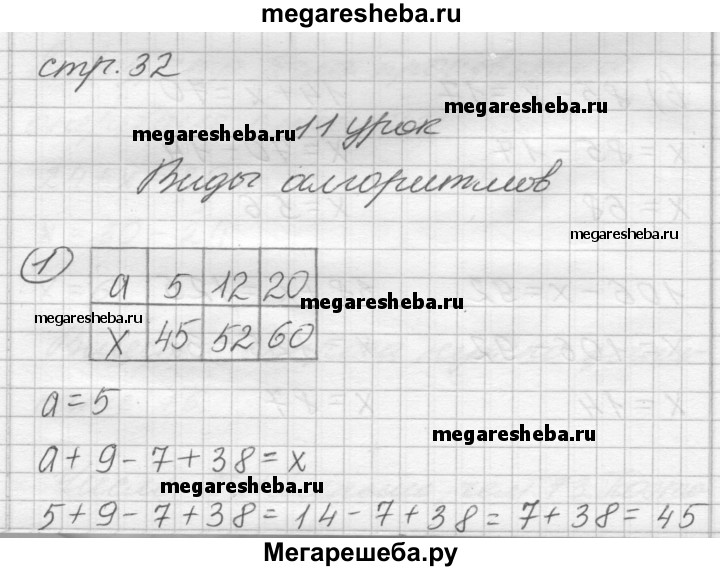 megaresheba.ru
стр. 32
megaresheba.ru
11 урок
megaresheba.ru
Виды алгоритмов
megaresheba.ru
1
a 5 12 20
megaresheba.ru
megaresheba.ru
x 45 52 60
a = 5
megaresheba.ru
a + 9 - 7 + 38 = x
megaresheba.ru
5 + 9 - 7 + 38 = 14 - 7 + 38 = 7 + 38 = 45
Мегарешеба.ру